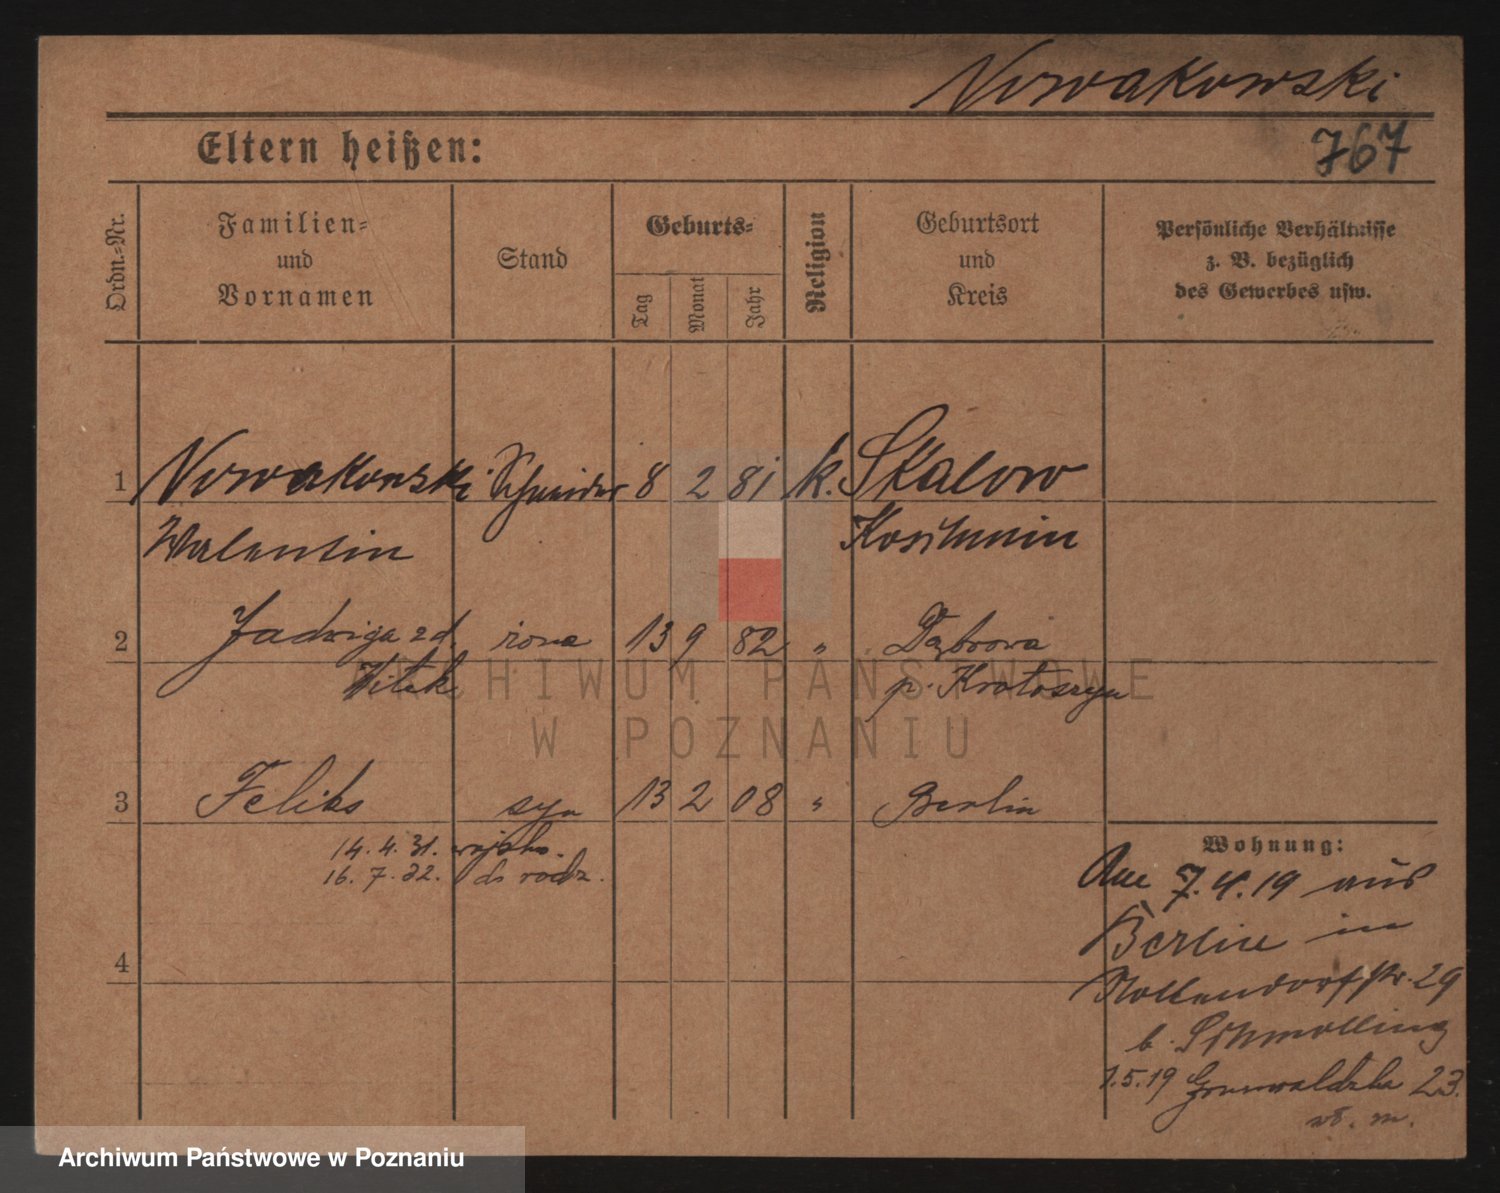 Nowakowski
Eltern heißen:
767
Ordn.-Nr.
Familien-
und
Vornamen
Stand
Geburts-
Tag
Monat
Jahr
Religion
Geburtsort
und
Kreis
Persönliche Verhältnisse
z. B. bezüglich
des Gewerbes usw.
1 Nowakowski Schneider 8 2 81 k. Skalow
Walentin Koschmin
2 Jadwiga zd. żona 13 9 82 " Dąbrowa
Witek p. Krotoszyn
3 Feliks syn 13 2 08 " Berlin
14. 4. 31. wojsko.
16. 7. 32. do rodz.
4
Wohnung:
Am 7.4.19 aus
Berlin in
Nollendorfstr. 29
b. Schmolling
1.5.19 Grunwaldzka 23.
wł. m.
ARCHIWUM PAŃSTWOWE
W POZNANIU
Archiwum Państwowe w Poznaniu